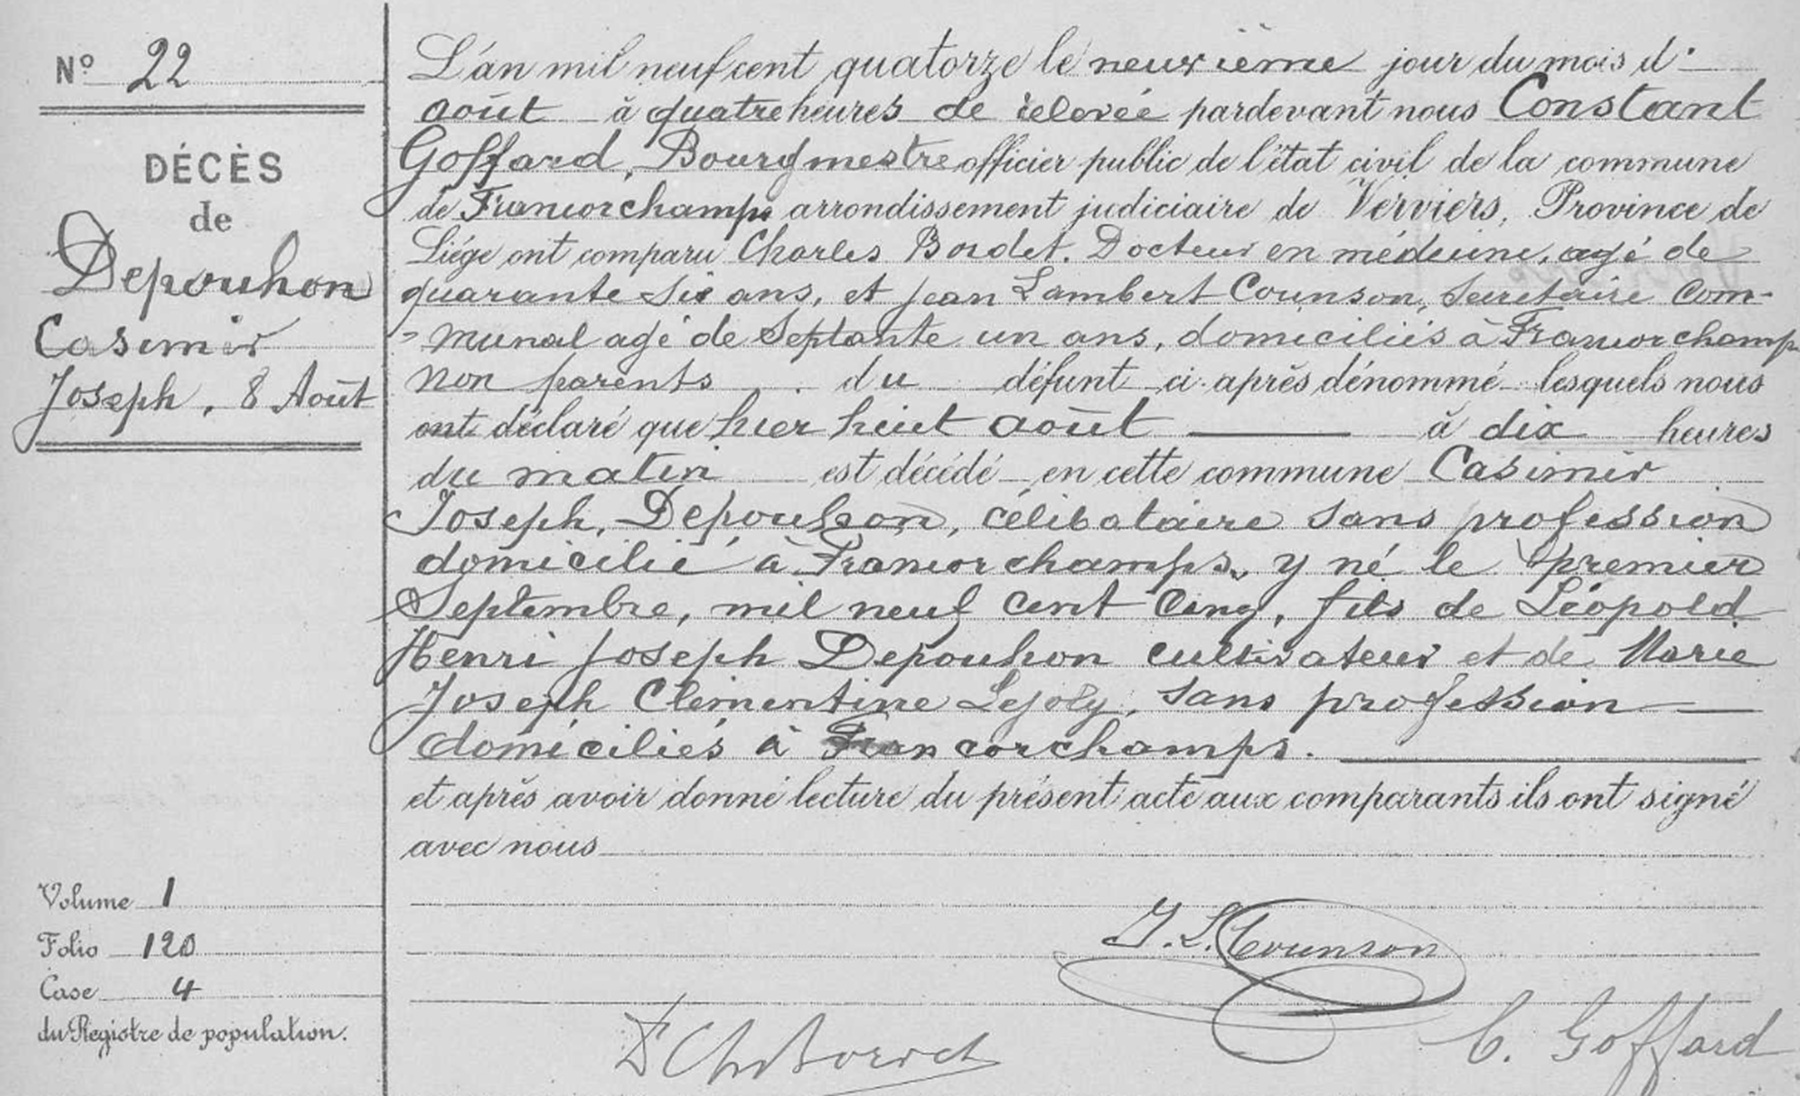 N° 22
DÉCÈS
de
Depouhon
Casimir
Joseph, 8 Août
L'an mil neuf cent quatorze le neuvième jour du mois d'
août à quatre heures de relevée pardevant nous Constant
Goffard, Bourgmestre officier public de l'état civil de la commune
de Francorchamps arrondissement judiciaire de Verviers, Province de
Liége ont comparu Charles Bordet. Docteur en médecine, agé de
quarante six ans, et Jean Lambert Counson, Secrétaire Com-
-munal agé de Septante un ans, domiciliés à Francorchamps
non parents du défunt ci-après dénommé lesquels nous
ont déclaré que hier huit août à dix heures
du matin est décédé en cette commune Casimir
Joseph, Depouhon, célibataire sans profession
domicilié à Francorchamps, y né le premier
Septembre, mil neuf cent cinq, fils de Léopold
Henri Joseph Depouhon cultivateur et de Marie
Joseph Clémentine Lejoly, sans profession
domiciliés à Francorchamps.
et après avoir donné lecture du présent acte aux comparants ils ont signé
avec nous
Volume 1
Folio 120
Case 4
du Registre de population.
J. L. Counson
Dr Ch Bordet
C. Goffard